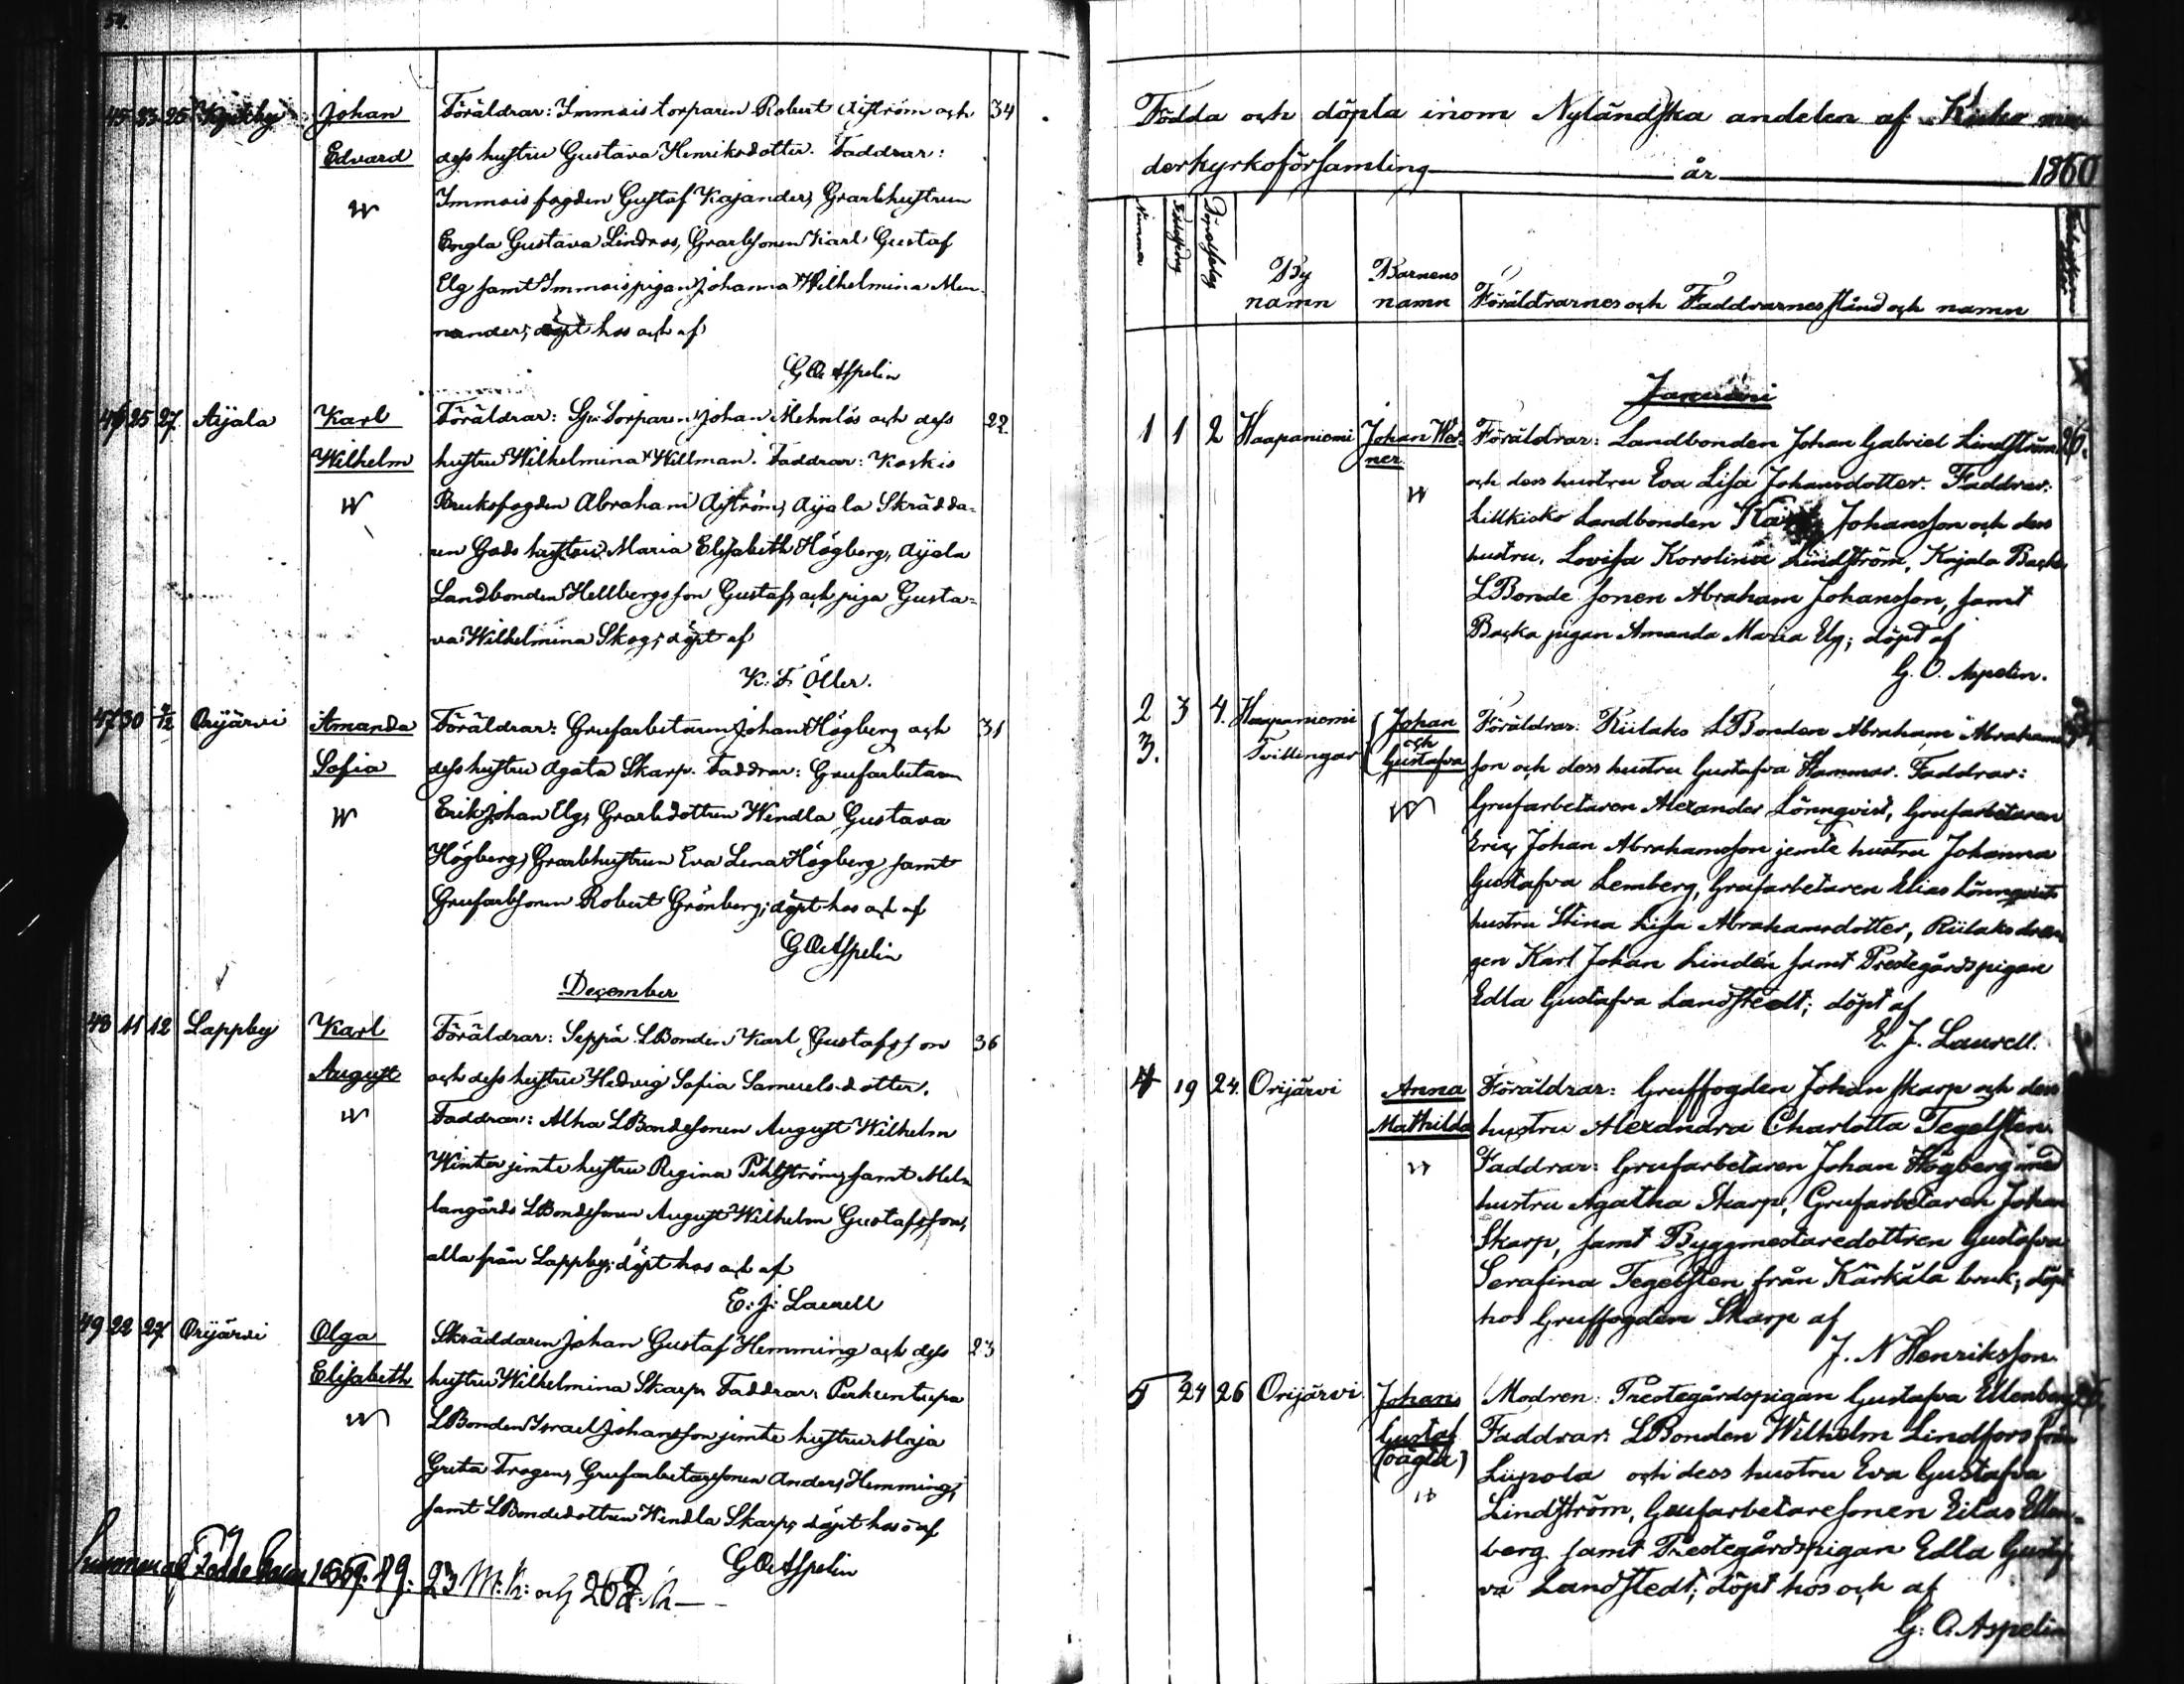 54.
45 23 25 Johan Föräldrar: Immois torparen Robert och 34
Edvard dess hustru Gustava Henriksdotter. Faddrar:
Immois fogden Gustaf Kajander, Grarbhustrun
Engla Gustava Lindros, Grarbsonen Karl Gustaf
Elg samt Immoispigan Johanna Wilhelmina Men-
nander; döpt hos och af
G O Aspelin
46 25 27 Aijala Karl Föräldrar: Johan och dess 22
Wilhelm hustru Wilhelmina Willman. Faddrar: Koskis
Bruksfogden Abraham Aijala Skrädda-
ren hustru Maria Elisabeth Högberg, Aijala
Landbonden Hellbergs son Gustaf, och piga Gusta-
va Wilhelmina Skog; döpt af
K. F. Öller.
47 30 2/12 Orijärvi Amanda Föräldrar: Grufarbetaren Johan Högberg och 31
Sofia dess hustru Agata Skarp. Faddrar: Grufarbetaren
Erik Johan Elg, Grarbdottren Wendla Gustava
Högberg, Grarbhustrun Eva Lena Högberg samt
Grufarbsonen Robert Grönberg; döpt hos och af
G O Aspelin
December
48 11 12 Lappby Karl Föräldrar: Seppä LBonden Karl Gustafsson 36
August och dess hustru Hedvig Sofia Samuels-dotter.
Faddrar: Alha LBondesonen August Wilhelm
Winter jemte hustru Regina Pihlström, samt Mel-
langårds LBondesonen August Wilhelm Gustafsson,
alla från Lappby; döpt hos och af
E. J. Laurell
49 22 27 Orijärvi Olga Skräddaren Johan Gustaf Hemming och dess 23
Elisabeth hustru Wilhelmina Skarp. Faddrar: Perkuntupa
LBonden Israel Johansson jemte hustru Maja
Greta Trogen, Grufarbetaresonen Anders Hemming,
samt LBondedottren Wendla Skarp; döpt hos o af
G O Aspelin
Summa af Födde 1859. 49. 23 M.k. och 26 Q.k.
Födda och döpta inom Nyländska andelen af Kisko mo-
derkyrkoförsamling år 1860
Nummer Födelsedag Döpelsedag By namn Barnens namn Föräldrarnes och Faddrarnes stånd och namn
Januari
1 1 2 Haapaniemi Johan Wer- Föräldrar: Landbonden Johan Gabriel Lindström 26.
ner och dess hustru Eva Lisa Johansdotter. Faddrar:
Lillkisko Landbonden Johansson och dess
hustru, Lovisa Karolina Lindström, Kajala Backa
LBonde sonen Abraham Johansson, samt
Backa pigan Amanda Maria Elg; döpt af
G. O. Aspelin.
2 3 4. Haapaniemi Johan Föräldrar: Riilaks LBonden Abraham Abrahams
3. Tvillingar och Gustafva son och dess hustru Gustafva Hammar. Faddrar:
Grufarbetaren Alexander Lönnqvist, Grufarbetaren
Eric Johan Abrahamsson jemte hustru Johanna
Gustafva Lemberg, Grufarbetaren Elias Lönnqvists
hustru Stina Lisa Abrahamsdotter, Riilaks drän-
gen Karl Johan Lindén samt Prestegårdspigan
Edla Gustafva Landstedt; döpt af
E. J. Laurell.
4 19 24. Orijärvi Anna Föräldrar: Gruffogden Johan Skarp och dess
Mathilda hustru Alexandra Charlotta Tegelsten.
Faddrar: Grufarbetaren Johan Högberg med
hustru Agatha Skarp, Grufarbetaren Johan
Skarp, samt Byggmestaredottren Gustafva
Serafina Tegelsten från Kärkälä bruk; döpt
hos Gruffogden Skarp af
J. N Henriksson
5 24 26 Orijärvi Johan Modren: Prestegårdspigan Gustafva Ellenberg
Gustaf Faddrar: LBonden Wilhelm Lindfors från
(oägta) Liipola och dess hustru Eva Gustafva
Lindström, Grufarbetaresonen Elias Ellen-
berg samt Prestegårdspigan Edla Gustaf-
va Landstedt; döpt hos och af
G. O. Aspelin